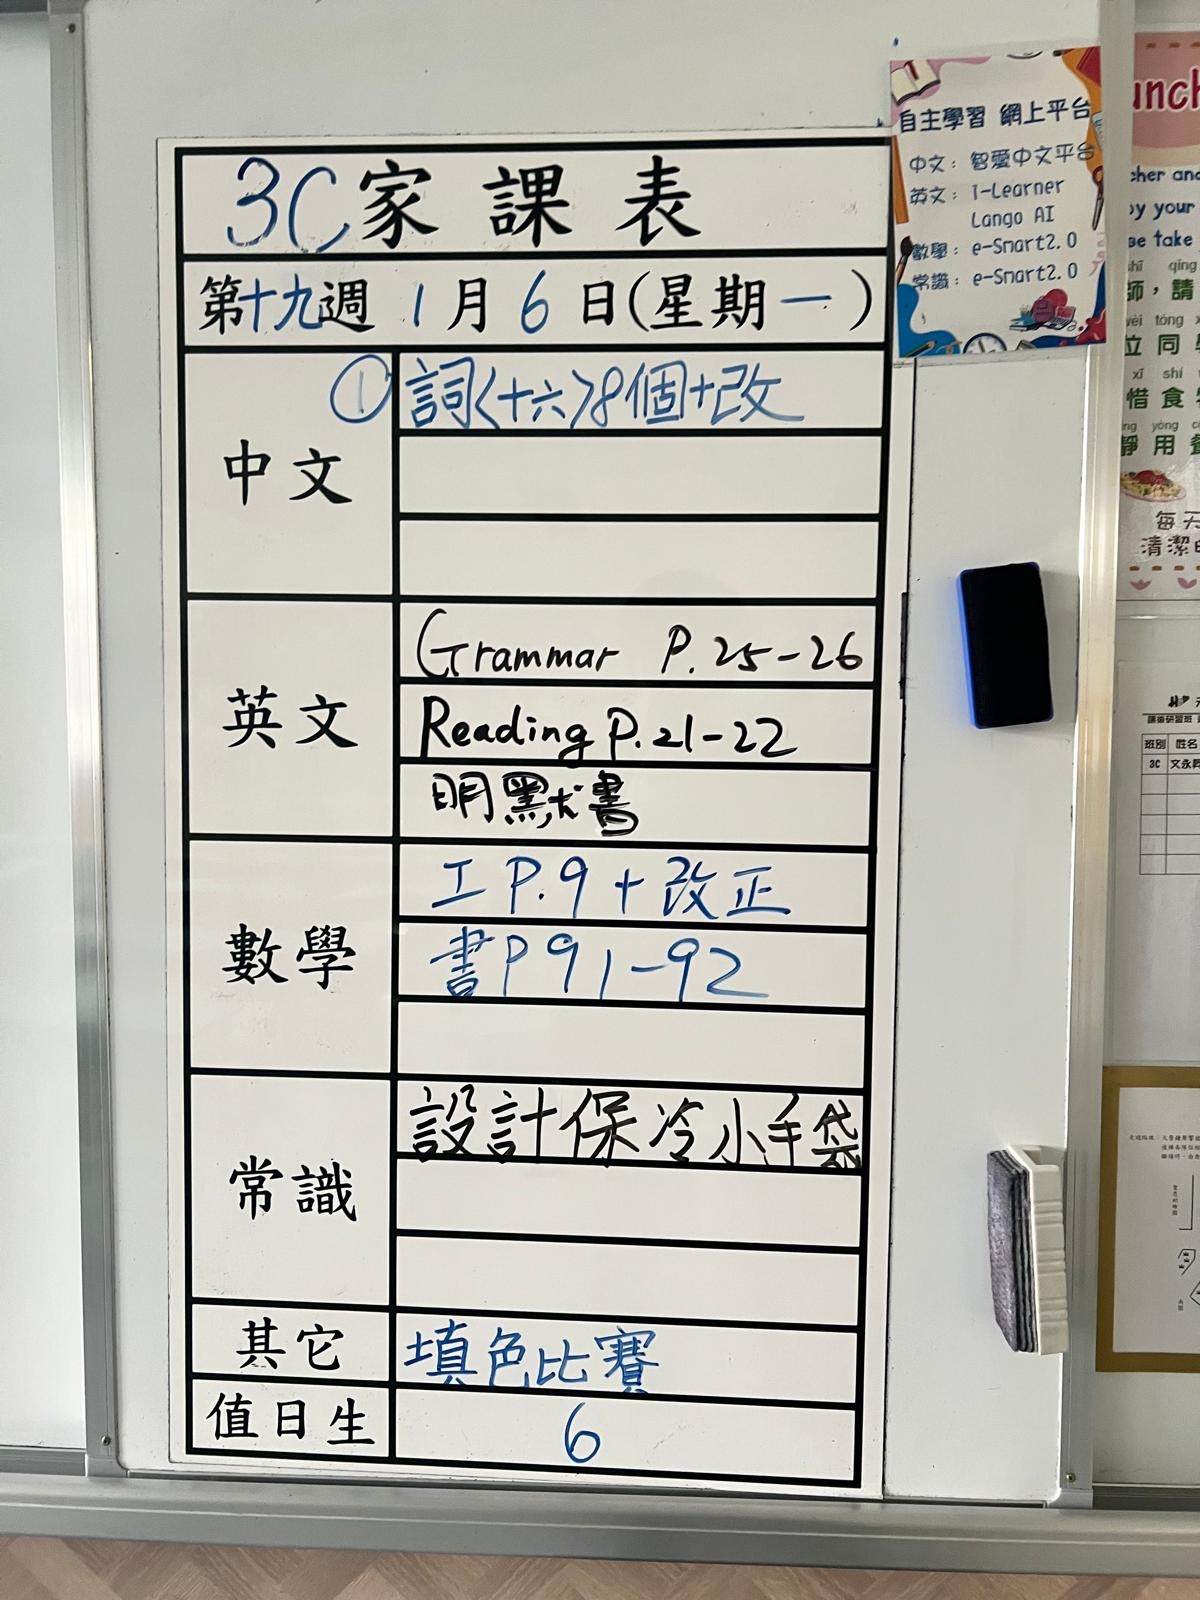 3C家課表
第十九週 1月6日(星期一)
中文
① 詞<十六>8個+改
英文
Grammar P.25-26
Reading P.21-22
明默書
數學
工 P.9 + 改正
書P 91-92
常識
設計保冷小手袋
其它
填色比賽
值日生
6
自主學習 網上平台
中文: 智愛中文平台
英文: i-Learner
Lango AI
數學: e-Smart2.0
常識: e-Smart2.0
unch
cher and
by your
se take
shī qǐng
師，請
wèi tóng
位同學
xī shí
惜食
yòng
靜用餐
每天
清潔
課後研習班
班別 姓名
3C